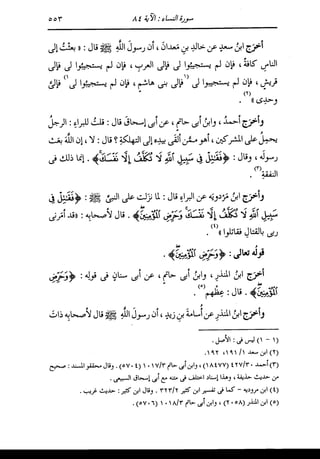 سورة النساء : الآية ٨٤
٥٥٣
أخرج ابنُ سعدٍ عن خالدِ بنِ مَعدانَ ، أن رسولَ اللهِ ﷺ قال : « بُعثتُ إلى
الناسِ كافةً ، فإن لم يستجيبوا لى فإلى العربِ ، فإن لم يستجيبوا لى فإلى
قريشٍ ، فإن لم يستجيبوا لى (١ فإلى بنى هاشمٍ ، فإن لم يستجيبوا لى ١) فإلىَّ
وحدى » (٢) .
وأخرج أحمدُ ، وابنُ أبى حاتمٍ ، عن أبى إسحاقَ قال : قلتُ للبراءِ : الرجلُ
يحملُ على المشركين ، أهو ممن ألقى بيدِه إلى التهلكةِ ؟ قال : لا ، إن اللهَ بعَث
رسولَه ، وقال : ﴿ فَقَاتِلْ فِى سَبِيلِ اللَّهِ لَا تُكَلَّفُ إِلَّا نَفْسَكَ ﴾ . إنما ذلك فى
النفقةِ (٣) .
وأخرج ابنُ مَرْدُويه عن البراءِ قال : لما نزَلت على النبىِّ ﷺ : ﴿ فَقَاتِلْ فِى
سَبِيلِ اللَّهِ لَا تُكَلَّفُ إِلَّا نَفْسَكَ وَحَرِّضِ الْمُؤْمِنِينَ ﴾ . قال لأصحابِه : « قد أمَرنى
ربى بالقتالِ فقاتِلوا » (٤) .
قولُه تعالى : ﴿ وَحَرِّضِ الْمُؤْمِنِينَ ﴾ .
أخرج ابنُ المنذرِ ، وابنُ أبى حاتمٍ ، عن أبى سنانٍ فى قولِه : ﴿ وَحَرِّضِ
الْمُؤْمِنِينَ ﴾ . قال : عِظْهم (٥) .
وأخرج ابنُ المنذرِ عن أسامةَ بنِ زيدٍ ، أن رسولَ اللهِ ﷺ قال لأصحابِه ذاتَ
(١ - ١) ليس فى : الأصل .
(٢) ابن سعد ١/ ١٩١، ١٩٢ .
(٣) أحمد ٤٢٧/٣٠ (١٨٤٧٧) ، وابن أبى حاتم ١٠١٧/٣ (٥٧٠٤) . وقال محققو المسند : صحيح
من حديث حذيفة ، وهذا إسناد اختلف فى متنه على أبى إسحاق السبيعى .
(٤) ابن مردويه - كما فى تفسير ابن كثير ٣٢٣/٢ . وقال ابن كثير : حديث غريب .
(٥) ابن المنذر (٢٠٥٨) ، وابن أبى حاتم ١٠١٨/٣ (٥٧٠٦) .